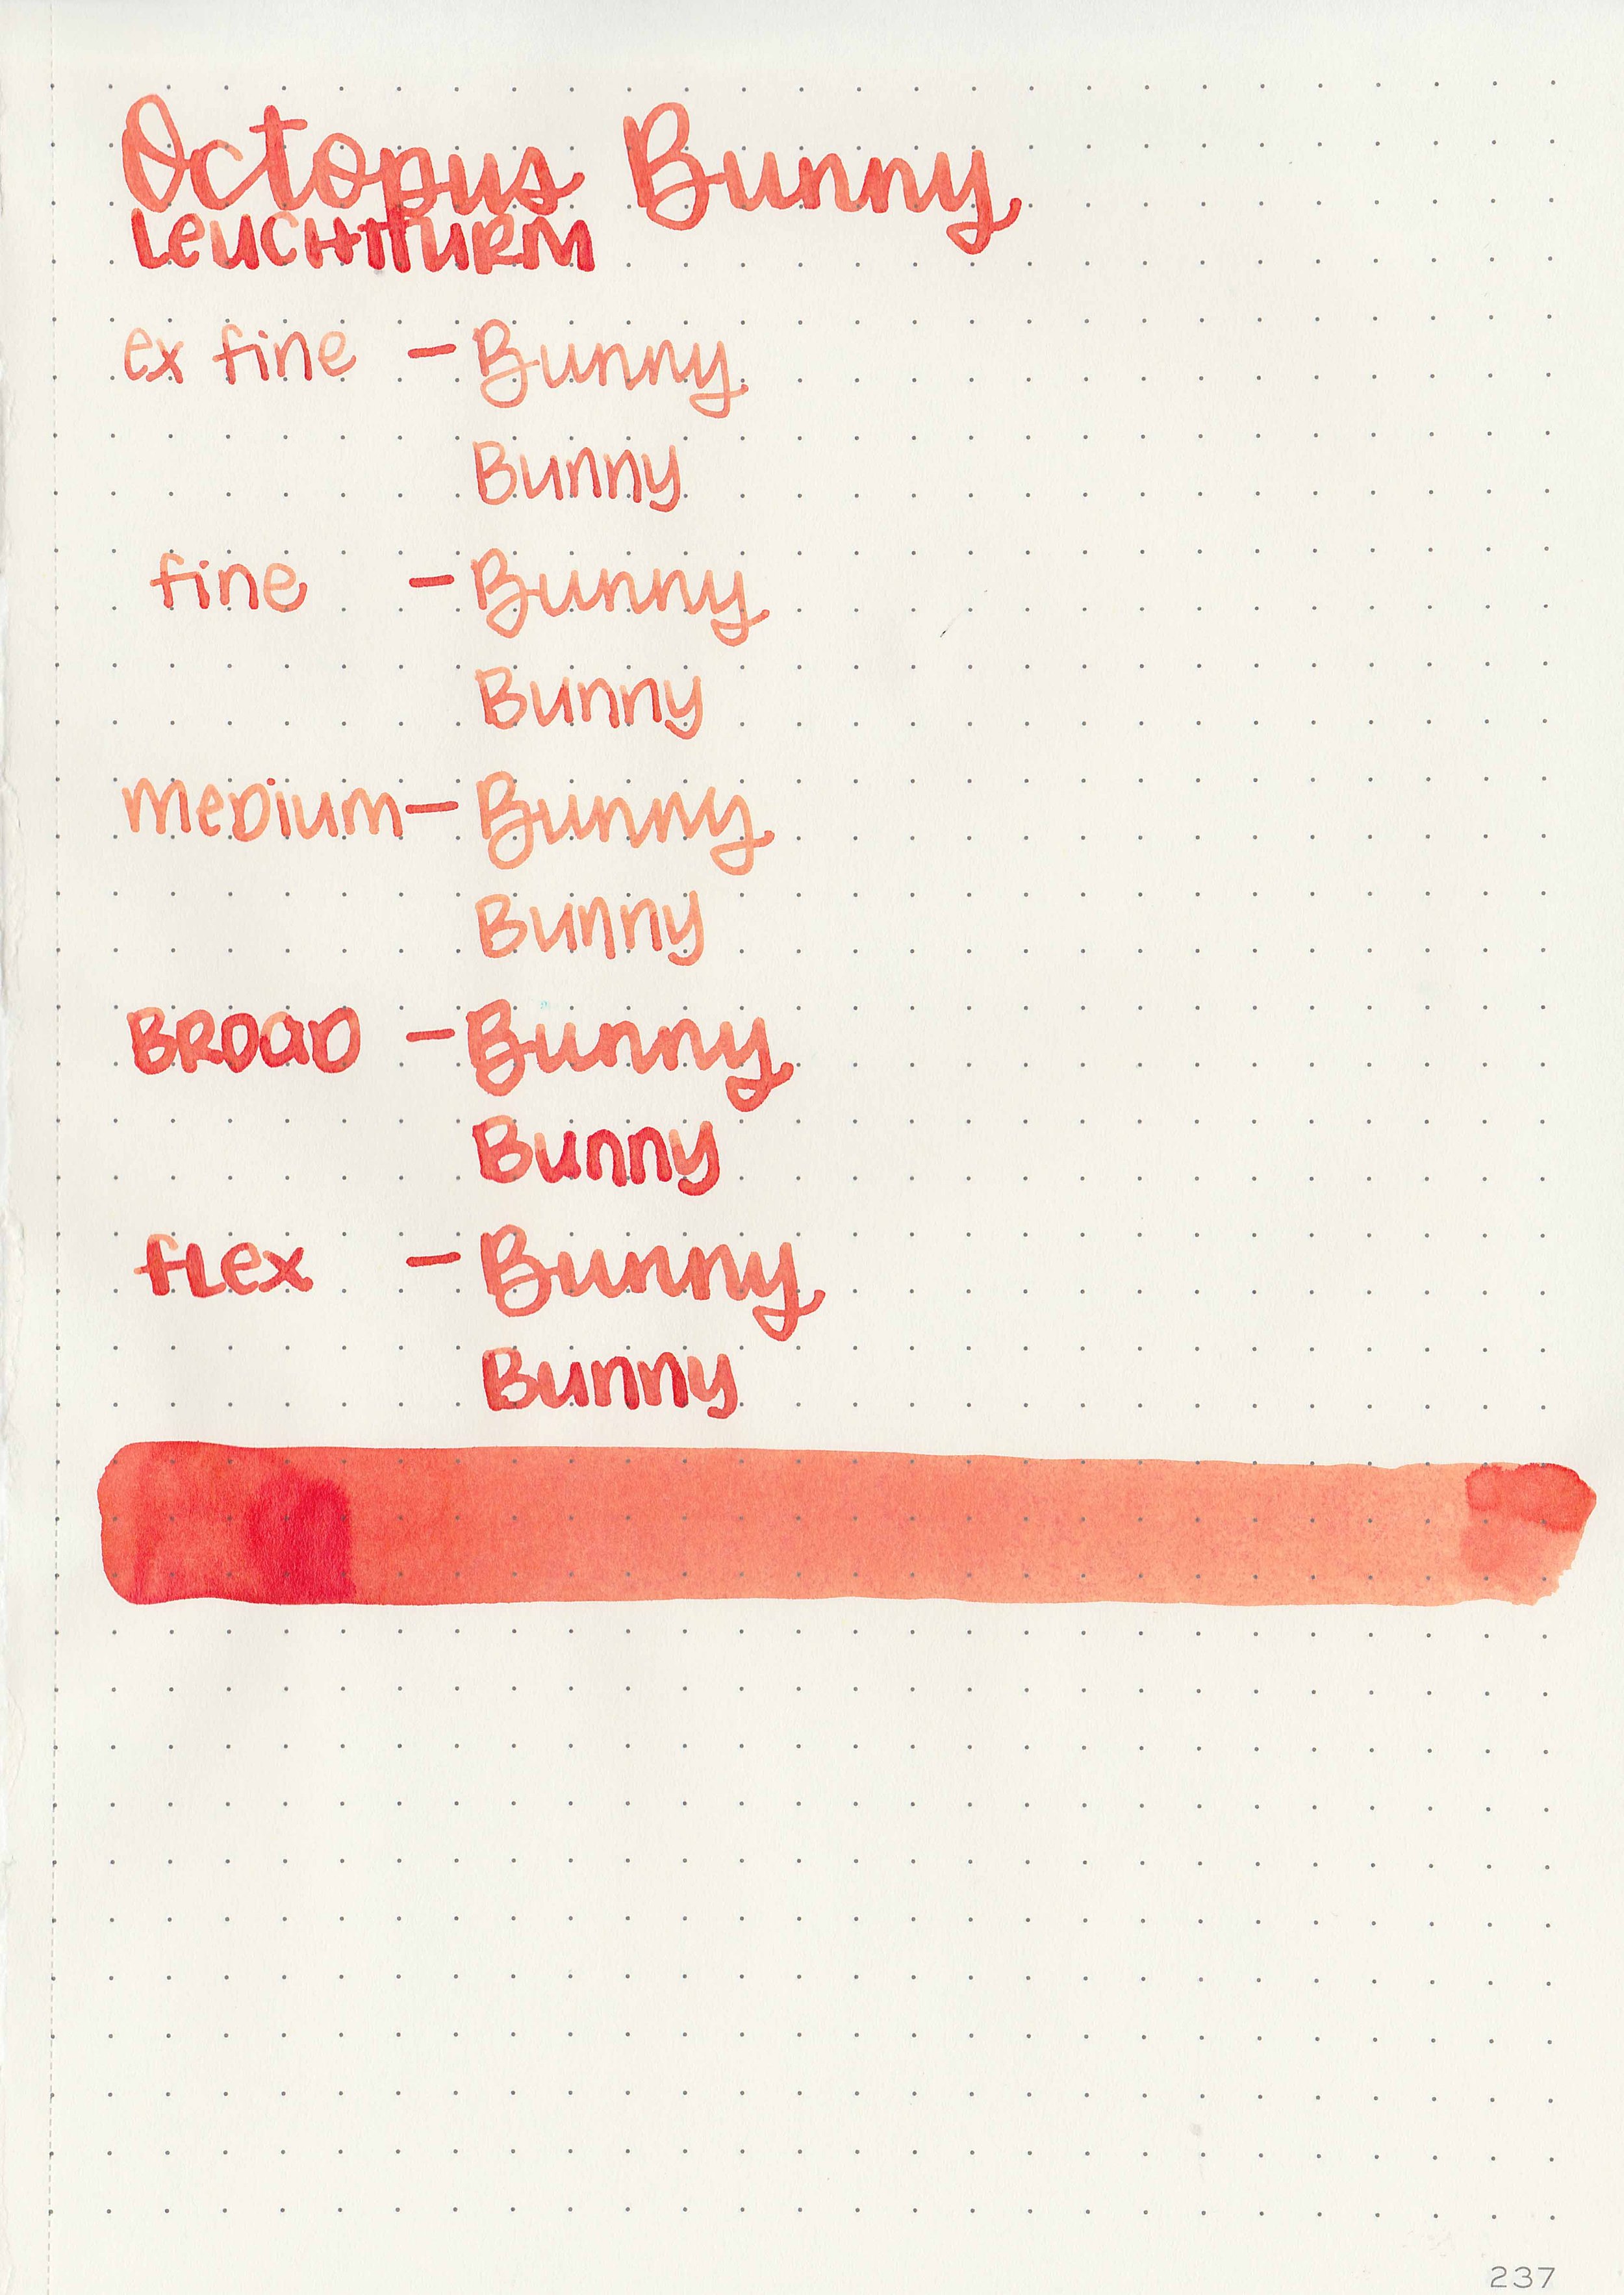 Octopus Bunny
LEUCHTTURM
ex fine - Bunny
Bunny
fine - Bunny
Bunny
MEDIUM - Bunny
Bunny
BROAD - Bunny
Bunny
FLEX - Bunny
Bunny
237